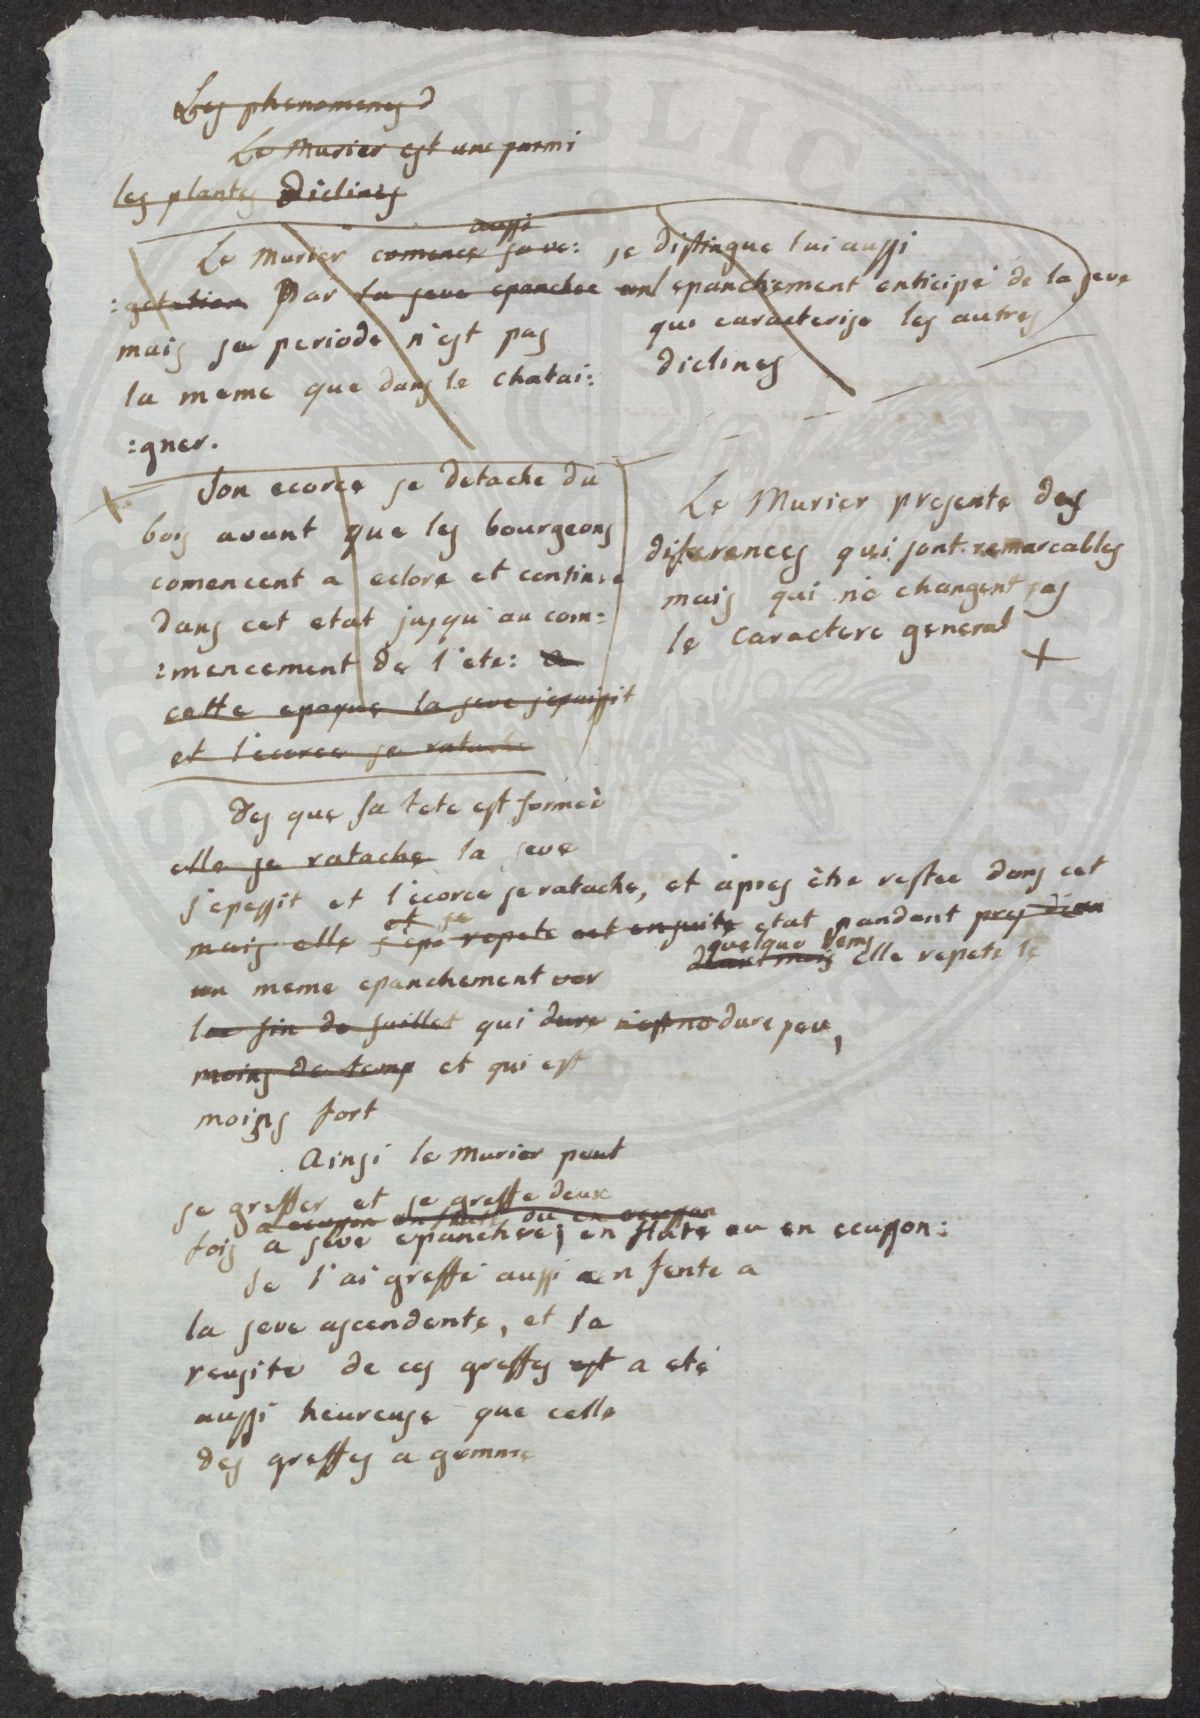 Les phenomenes d
Le Murier est une parmi
les plantes Diclines
aussi
Le Murier comence sa ve: se distingue lui aussi
:getation Par la seve epanchee un epanchement enticipé de la seve
mais sa periode n'est pas
qui caracterise les autres
la meme que dans le chatai:
diclines
:gner.
Son ecorce se detache du
bois avant que les bourgeons
comencent a eclore et continue
dans cet etat jusqu'au com:
:mencement de l'ete: a
cette epoque la seve s'epaissit
et l'ecorce se ratache
Le Murier presente des
diferences qui sont remarcables
mais qui ne changent pas
le caractere general
Des que sa tete est formeè
elle se ratache la seve
s'epessit et l'ecorce se ratache, et apres être restee dans cet
et se
mais elle s'epa repete et ensuite etat pandant pres d'un
quelque tems
un meme epanchement ver
mois elle repete le
la fin de juillet qui dure n'est ne dure peu,
moins de temp et qui est
moins fort
Ainsi le Murier peut
se greffer et se greffe deux
a ecusson en flute ou en ecusson
fois a seve epanchee; en flute ou en ecusson:
Je l'ai greffé aussi en fente a
la seve ascendente, et la
reusite de ces greffes est a eté
aussi heureuse que celle
des greffes a gemme